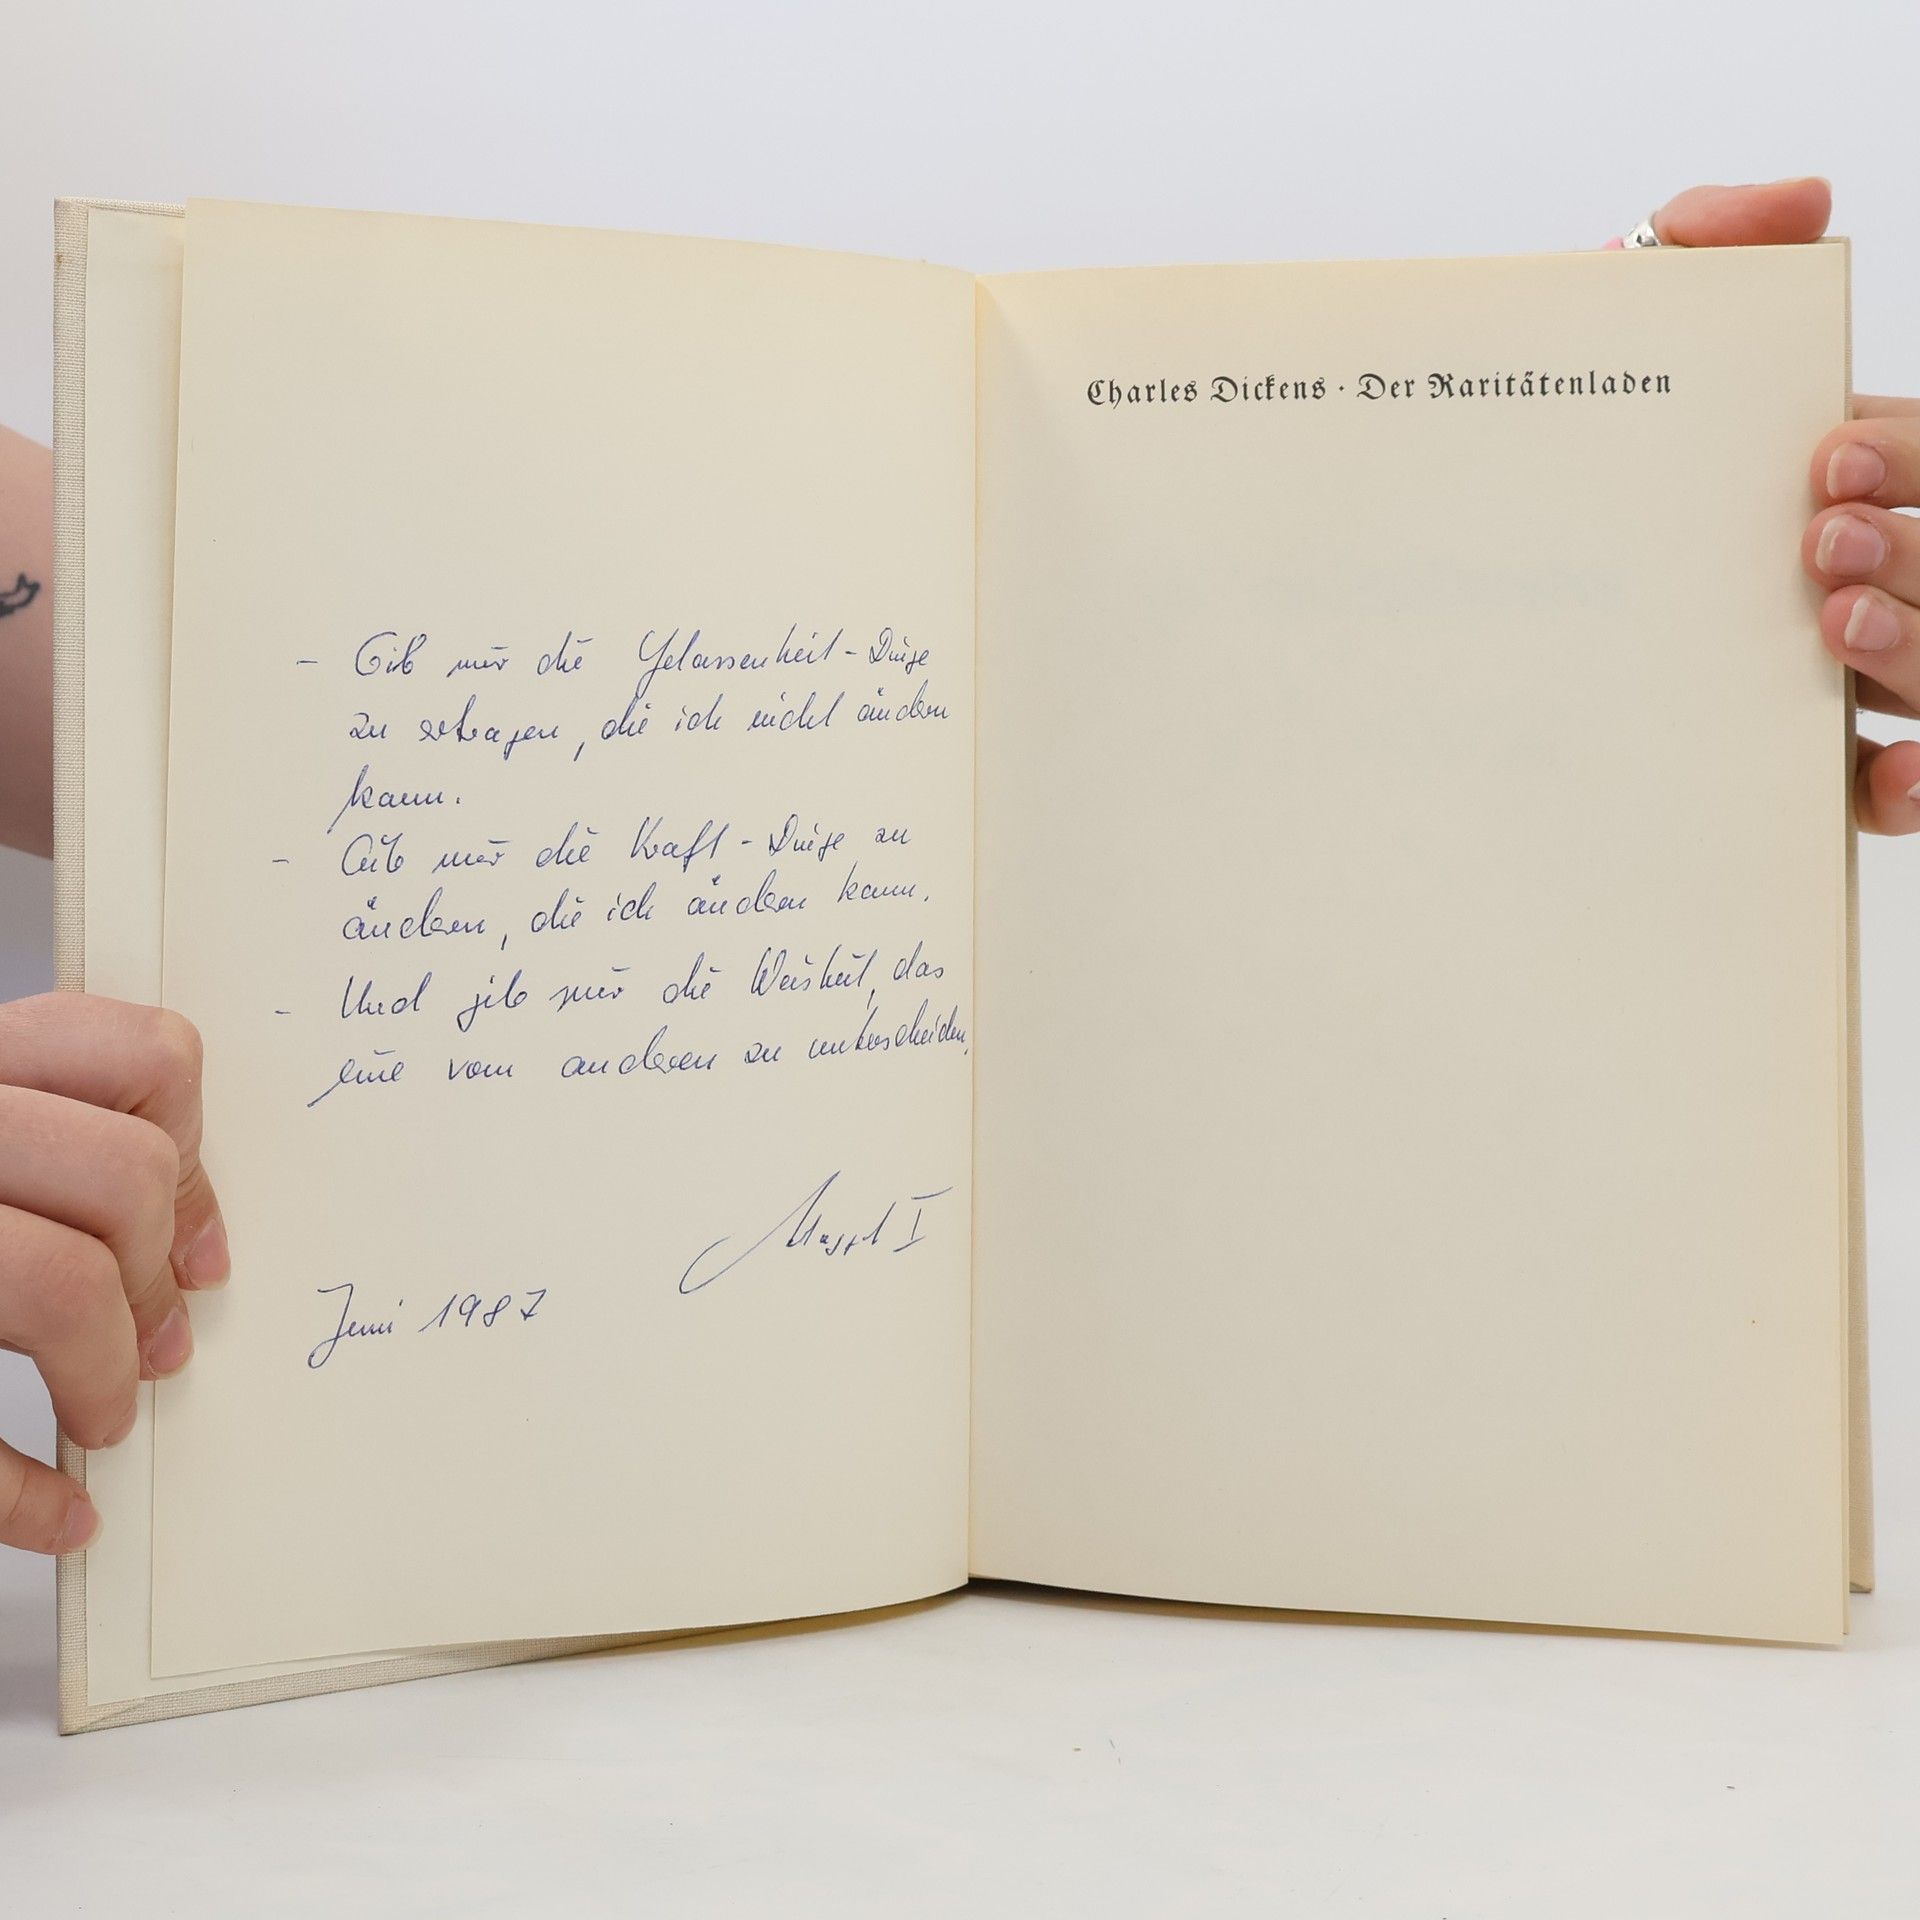 - Gib mir die Gelassenheit - Dinge
zu ertragen, die ich nicht ändern
kann.
- Gib mir die Kraft - Dinge zu
ändern, die ich ändern kann.
- Und gib mir die Weisheit, das
eine vom anderen zu unterscheiden.
I
Juni 1987
Charles Dickens · Der Raritätenladen